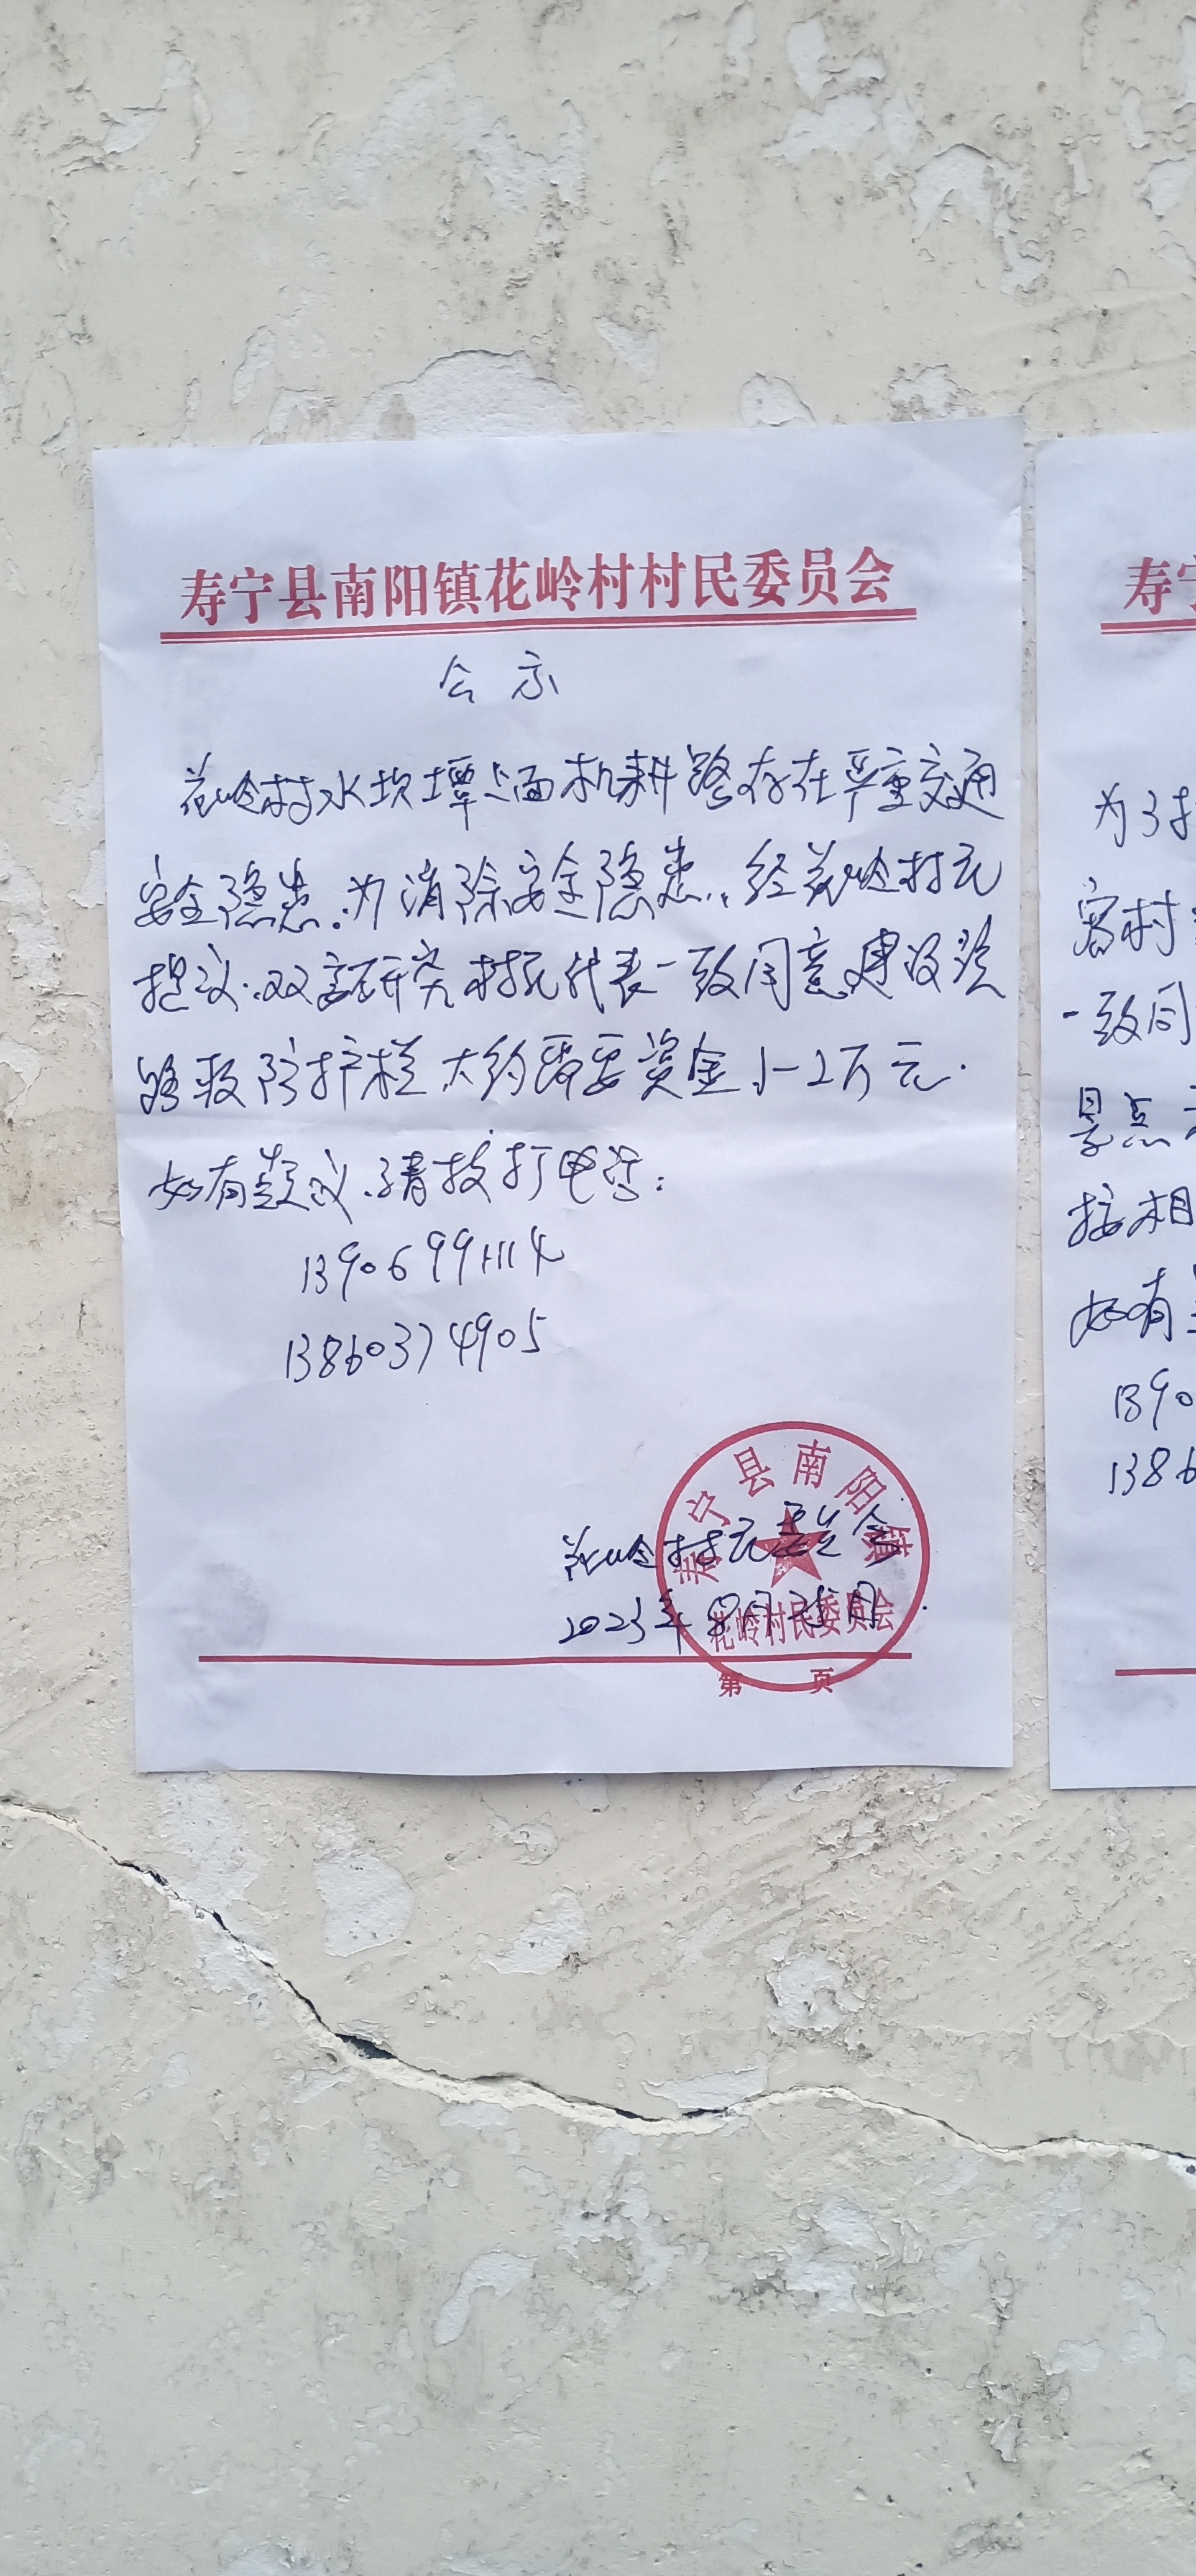 寿宁县南阳镇花岭村村民委员会
公示
花岭村水坝潭上面机耕路存在严重交通
安全隐患.为消除安全隐患,经花岭村民
提议.双委研究村民代表一致同意建设该
路段防护栏大约需要资金 1-2万元.
如有疑议.请拨打电话:
13906991114
13860374905
花岭村民委员会
2023年8月
寿宁县南阳镇
花岭村民委员会
第 页
寿宁
为了
客村
一致同
景点
接相
如有
1390
1386